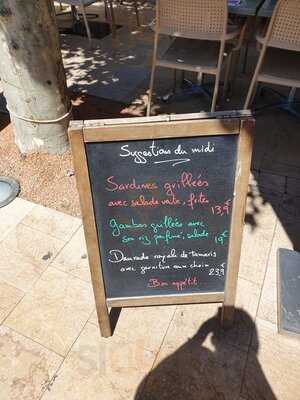 Suggestion du midi
Sardines grillées
avec salade verte, frites
13,9€
Gambas grillées avec
son riz parfumé, salade
19€
Daurade royale de tamaris
avec garniture aux choix
23,9€
Bon appétit